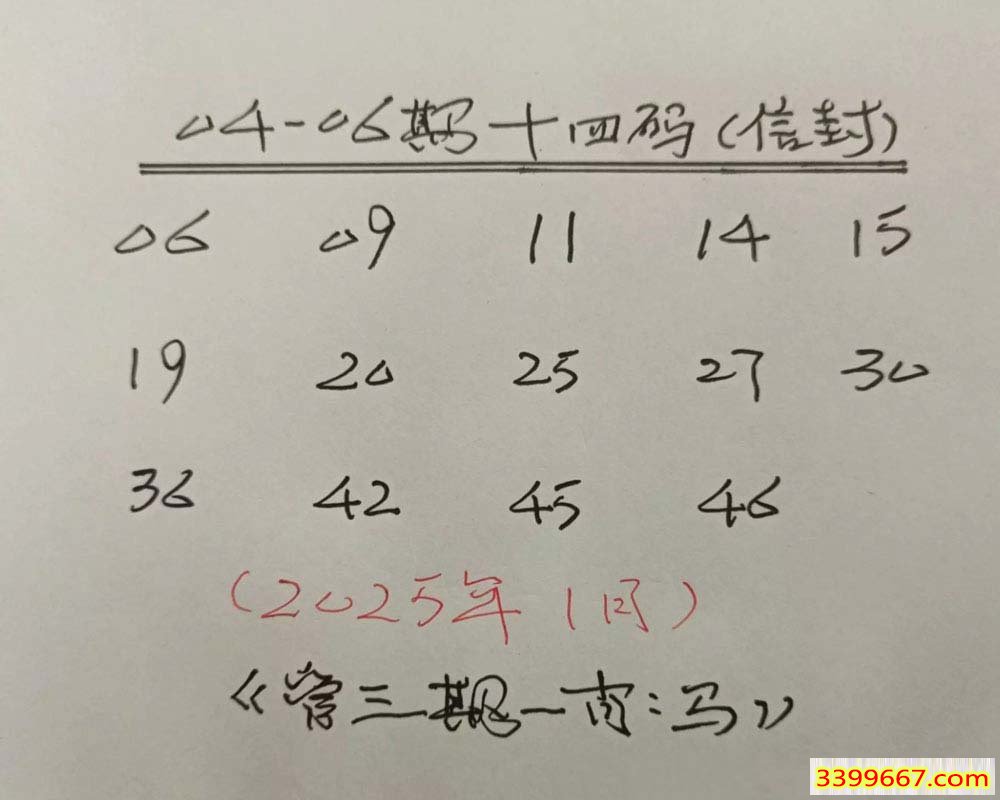 04-06期一十四码(信封)
06 09 11 14 15
19 20 25 27 30
36 42 45 46
(2025年1月)
《管三期一肖:马》
3399667.com